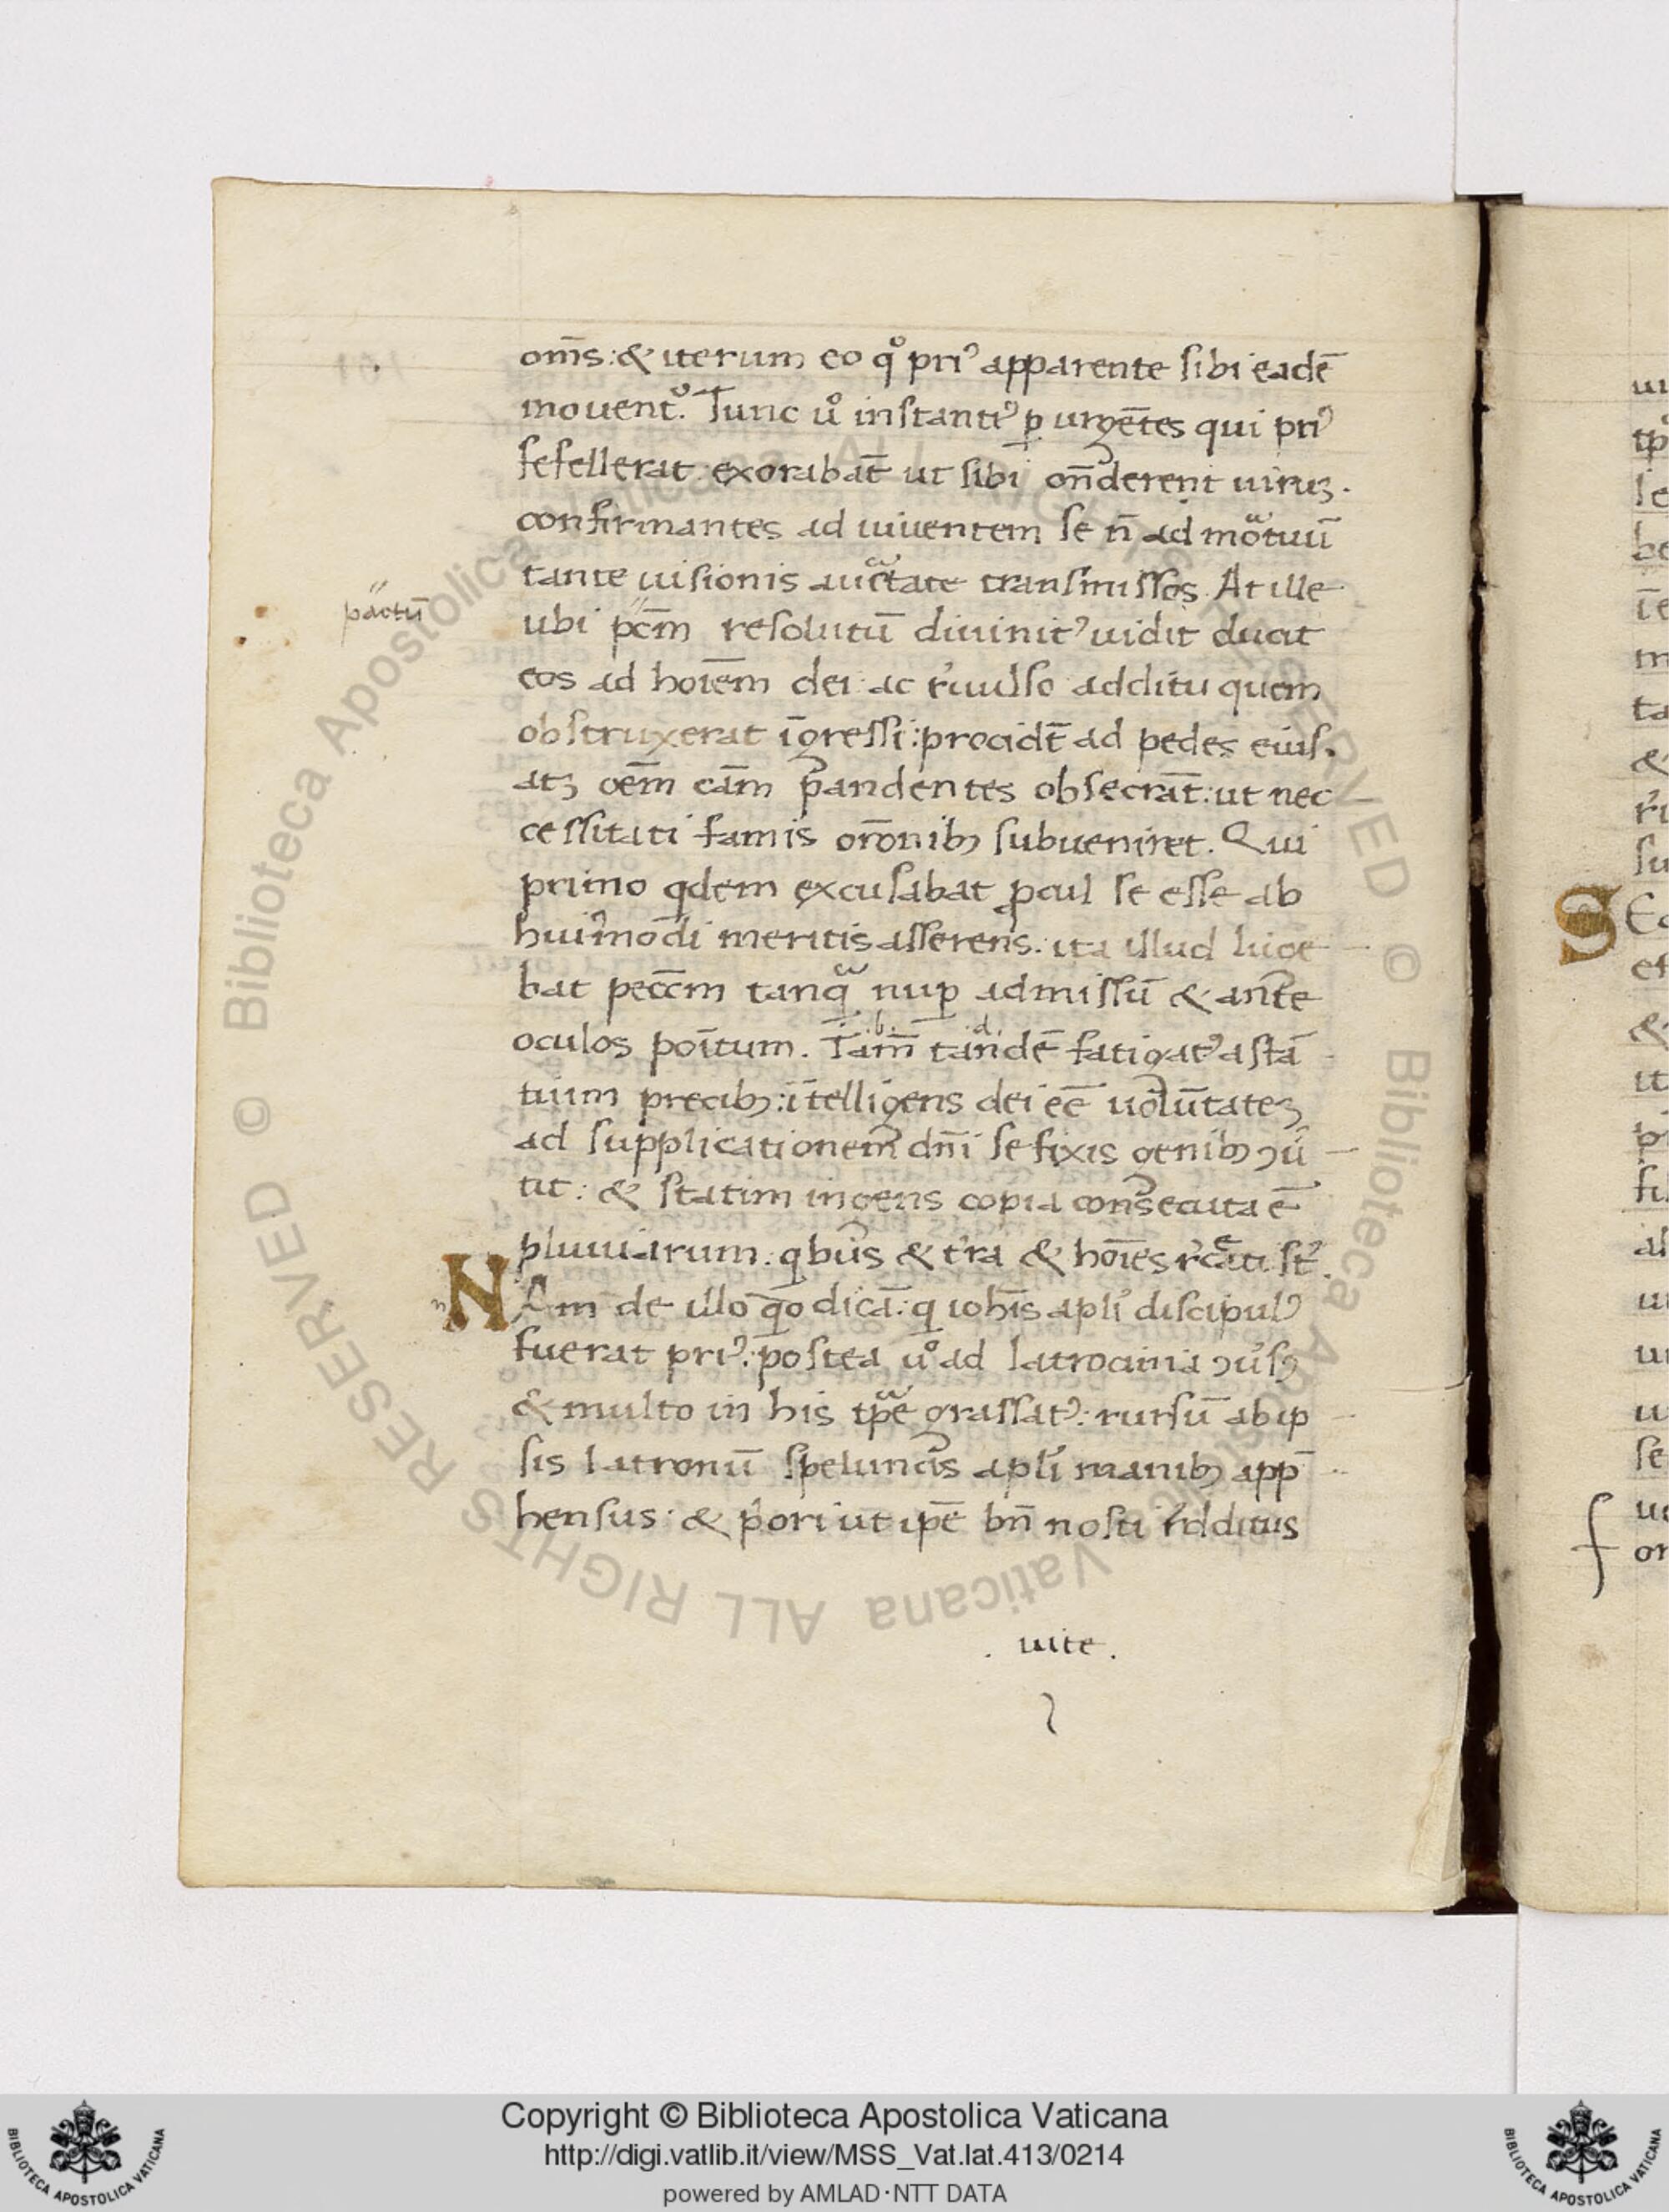 om̄s: & iterum eo qͦ pri⁹ apparente sibi eadē
mouentᷣ. Tunc uͦ instanti⁹ ꝑ urgētes qui pri⁹
fefellerat exorabāt ut sibi on̄derent uiruꝫ.
confirmantes ad uiuentem se n̄ ad moᷓtuū
tante uisionis auctᷓate transmissos. At ille
ubi pc̄m resolutū diuinit⁹ uidit ducit
pactū
eos ad hoīem dei: ac r̓uulso additu quem
obstruxerat īgressi: procidt̄ ad pedes eius.
atꝫ oēm cām pandentes obsecrāt: ut nec
cessitati famis orōnibꝫ subueniret. Qui
primo qdem excusabat ꝓcul se esse ab
hui̓modi meritis asserens. ita illud luge
bat pecc̄m tanqᷓ nuꝑ admissū & ante
oculos poītum. Tam̄ tandē fatigat⁹ astā
.b. .d.
tium precibꝫ: ītelligens dei eē uolūtateꝫ
ad supplicationem dn̄i se fixis genibꝫ ꝯū
tit: & statim ingens copia consecuta ē
pluuiarum: qbus & tr̓a & hoīes r̓cͤati st̄.
NAm de illo qͦo dicā: q ioh̄is apl̓i discipul⁹
fuerat pri⁹: postea uͦ ad latrocinia ꝯu̓sꝫ
& multo in his tp̄ᷓe grassat⁹: rursū ab ip
sis latronū speluncis apl̓i manibꝫ app̄
hensus: & p̓ori ut ip̄e bn̄ nosti r̓dditus
. uite .